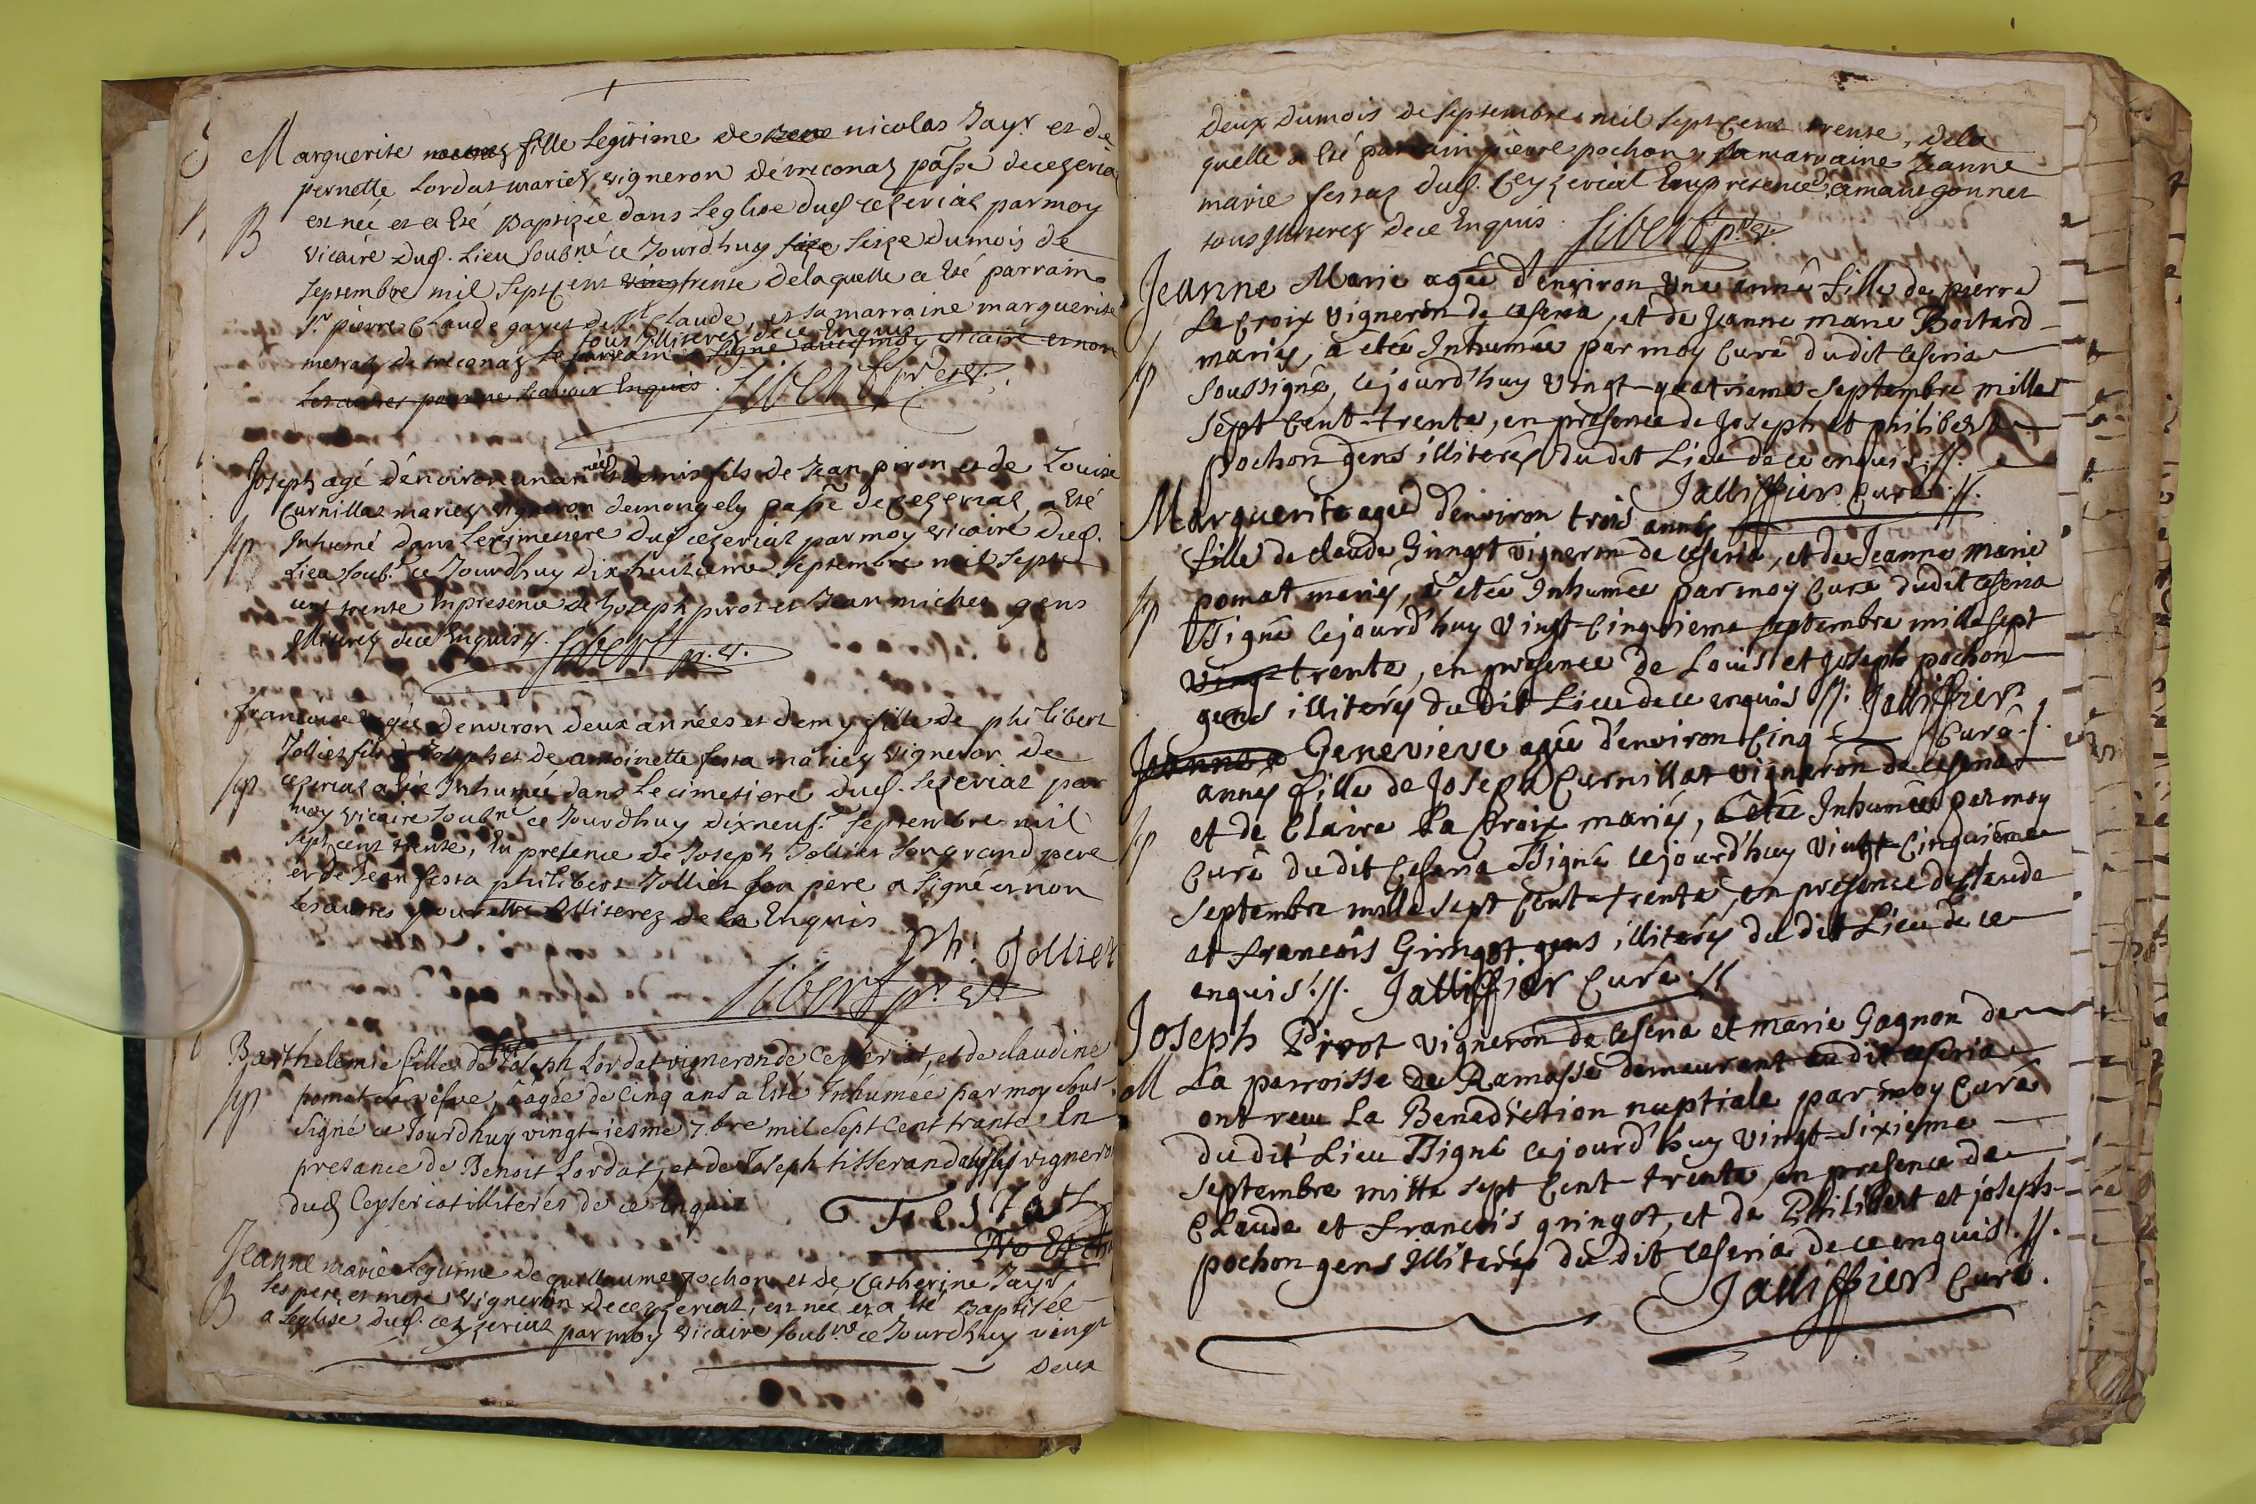 Marguerite fille legitime de nicolas Jayr et de
pernette Lordat mariez vigneron de treconaz passe decezeria
B est née et a été baptizée dans leglise dud cezeriat par moy
vicaire dud. lieu soubné ce Jourdhuy seize dumois de
septembre mil sept cent trente de laquelle a été parrain
Sr pierre Claude gayet de St Claude, et sa marraine marguerite
tous illiterez de ce Enquis
metraz de treconaz le parrain a signé avec moy vicaire et non
Les autres pour ne scavoir Enquis. Sibert pr. et v.
Joseph agé d'environ un année et demis fils de Jean piron et de Louise
Curnillat mariez vigneron demongely passe de cezeriat, a été
Sp Inhumé dans le cimetiere dud cezeriat par moy vicaire dud.
Lieu soub.né ce Jourdhuy dix huitieme septembre mil sept
cent trente En presence de Joseph pirot et Jean michel gens
illiterez de ce Enquis. Sibert pr. et v.
francoise agée denviron deux années et demy fille de philibert
Jolliet fils de Joseph et de antoinette festa mariez vigneron de
Sp cezeriat a été Inhumée dans le cimetiere dud. cezeriat par
moy vicaire soubné ce Jourdhuy dixneuf.e septembre mil
sept cent trente, En presence de Joseph Jolliet son grand pere
et de Jean festa philibert Jolliet son pere a signé et non
les autres pour etre illiterez de ce Enquis
Ph. Jolliet
Sibert pr. et v.
Barthelemie fille de Joseph Lordat vigneron de Ceyseriat, et de claudine
Sp pomat sa vefve, âagée de cinq ans a Esté Inhumée par moy sous-
signé ce Jourdhuy vingt-iesme 7.bre mil sept cent trante En
presance de Benoit Lordat, et de Joseph tisserand vigneron
dud Ceyseriat illiterés de ce Enquis
Festaz
Jeanne marie legitime de guillaume pochon et de Catherine Jayr
ses pere et mere, vigneron de ceyzeriat, est née et a été Baptisée
B a leglise dud. ceyzeriat par moy vicaire soubné ce Jourdhuy vingt
deux
deux dumois de septembre mil sept cent trente, dela
quelle a été parrain pierre pochon, sa marraine Jeanne
marie festaz dud. Ceyzeriat En presence d'amant gonnet
tous illiterez de ce Enquis. Sibert pr. et v.
Jeanne Marie agée d'environ une année fille de pierre
La Croix vigneron de ceseria, et de Jeanne marie Boitard
Sp mariés, a étée Inhumée par moy Curé dudit ceseria
soussigné, cejourd'huy vingt-quatrieme septembre mille
sept cent-trente, en presence de Joseph et philibert
pochon gens illiterés du dit Lieu de ce enquis.//.
Jalliffier Curé.//.
Marguerite agée d'environ trois années
fille de claude Gringot vigneron de ceseria, et de Jeanne marie
Sp pomat mariés, a étée Inhumée par moy Curé dudit ceseria
ssigné cejourd'huy vingt-cinquieme septembre mille sept
vingt trente, en presence de Louis et Joseph pochon
gens illiterés du dit Lieu de ce enquis //. Jalliffier
Curé.//.
Jeanne Genevieve agée d'environ cinq
années fille de Joseph Curnillat vigneron de ceseria
Sp et de Claire La Croix mariés, a étée Inhumée par moy
Curé du dit ceseria ssigné cejourd'huy vingt-cinquieme
septembre mille sept cent-trente, en presence de claude
et francois Gringot gens illiterés du dit Lieu de ce
enquis.//. Jalliffier Curé.//
Joseph Pirot vigneron de ceseria et marie Gagnon de
M La parroisse de Ramasse demeurant au dit ceseria
ont reçu La Benediction nuptiale par moy Curé
du dit Lieu ssigné cejourd'huy vingt-sixieme
septembre mille sept cent-trente, en presence de
Claude et francois gringot, et de Philibert et joseph-
pochon gens illiterés du dit ceseria de ce enquis.//.
Jalliffier Curé.